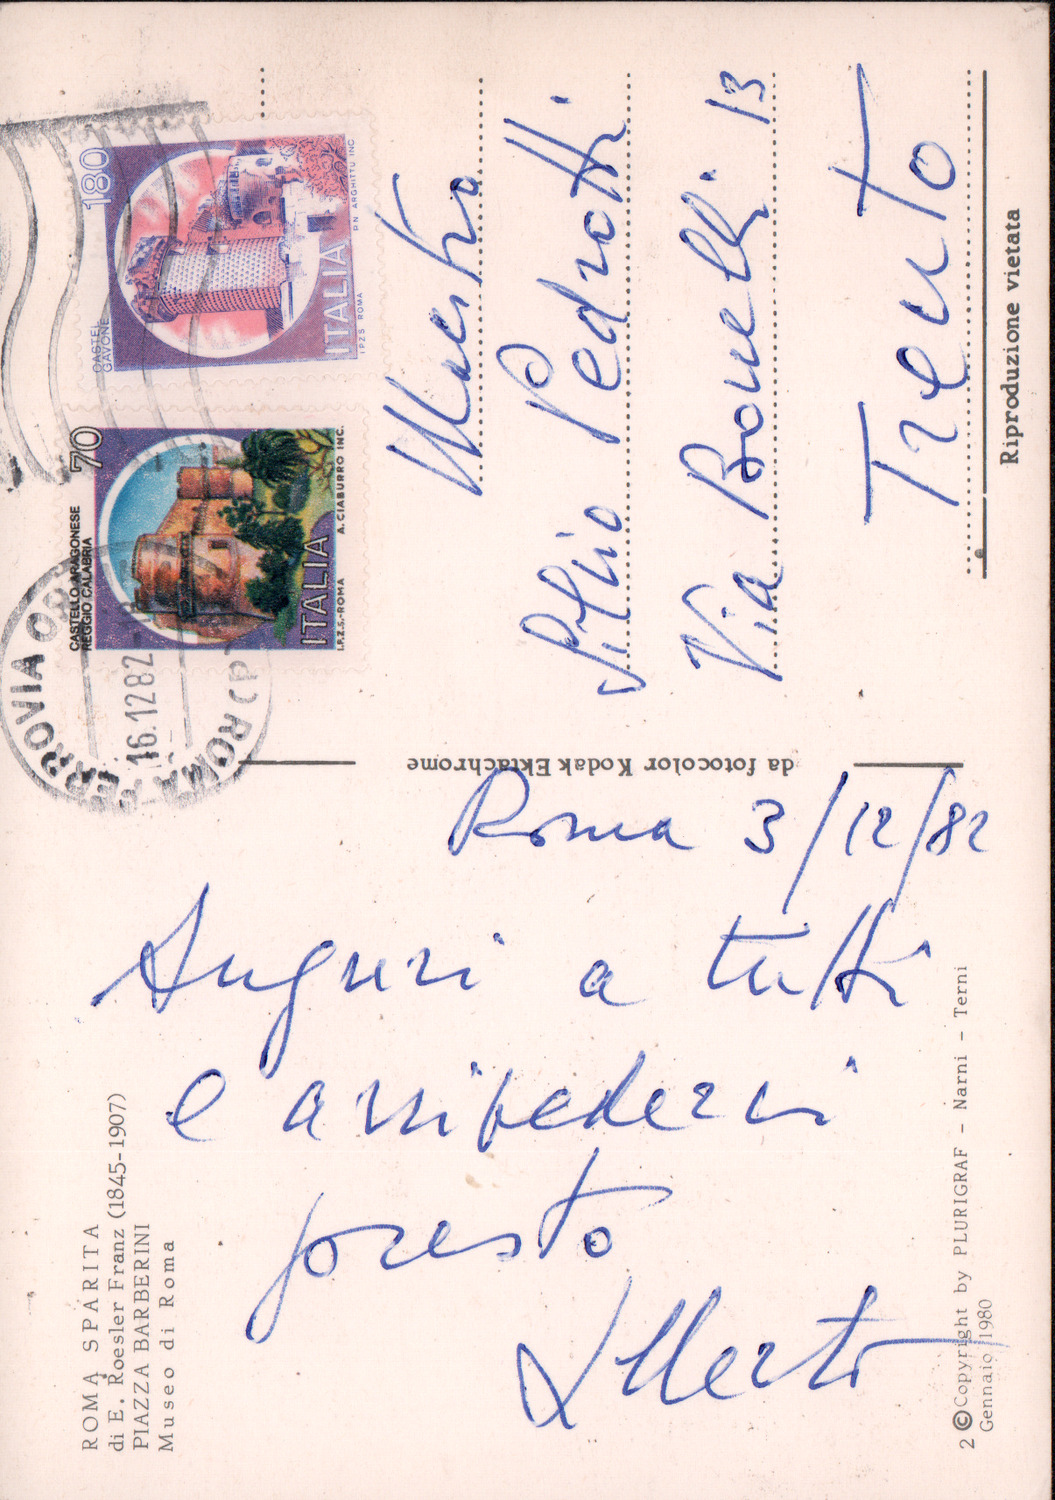 ROMA SPARITA
di E. Roesler Franz (1845-1907)
PIAZZA BARBERINI
Museo di Roma
Roma 3/12/82
Auguri a tutti
e arrivederci
presto
Alberto
2 © Copyright by PLURIGRAF - Narni - Terni
Gennaio 1980
da fotocolor Kodak Ektachrome
ROMA FERROVIA
16.12.82
70
CASTELLO ARAGONESE
REGGIO CALABRIA
ITALIA
I.P.Z.S.-ROMA A. CIABURRO INC.
180
CASTEL
GAVONE
ITALIA
I.P.Z.S. ROMA P.N. ARGHITTU INC
Maestro
Silvio Pedrotti
Via Bonelli 13
Trento
Riproduzione vietata